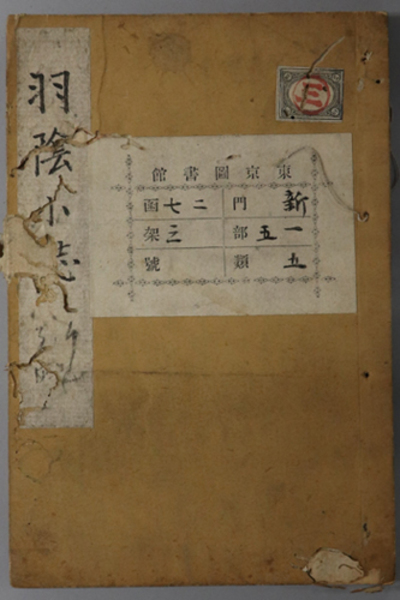 羽陰小志
三
東京圖書館
新門二七函
一五部三架
五類號